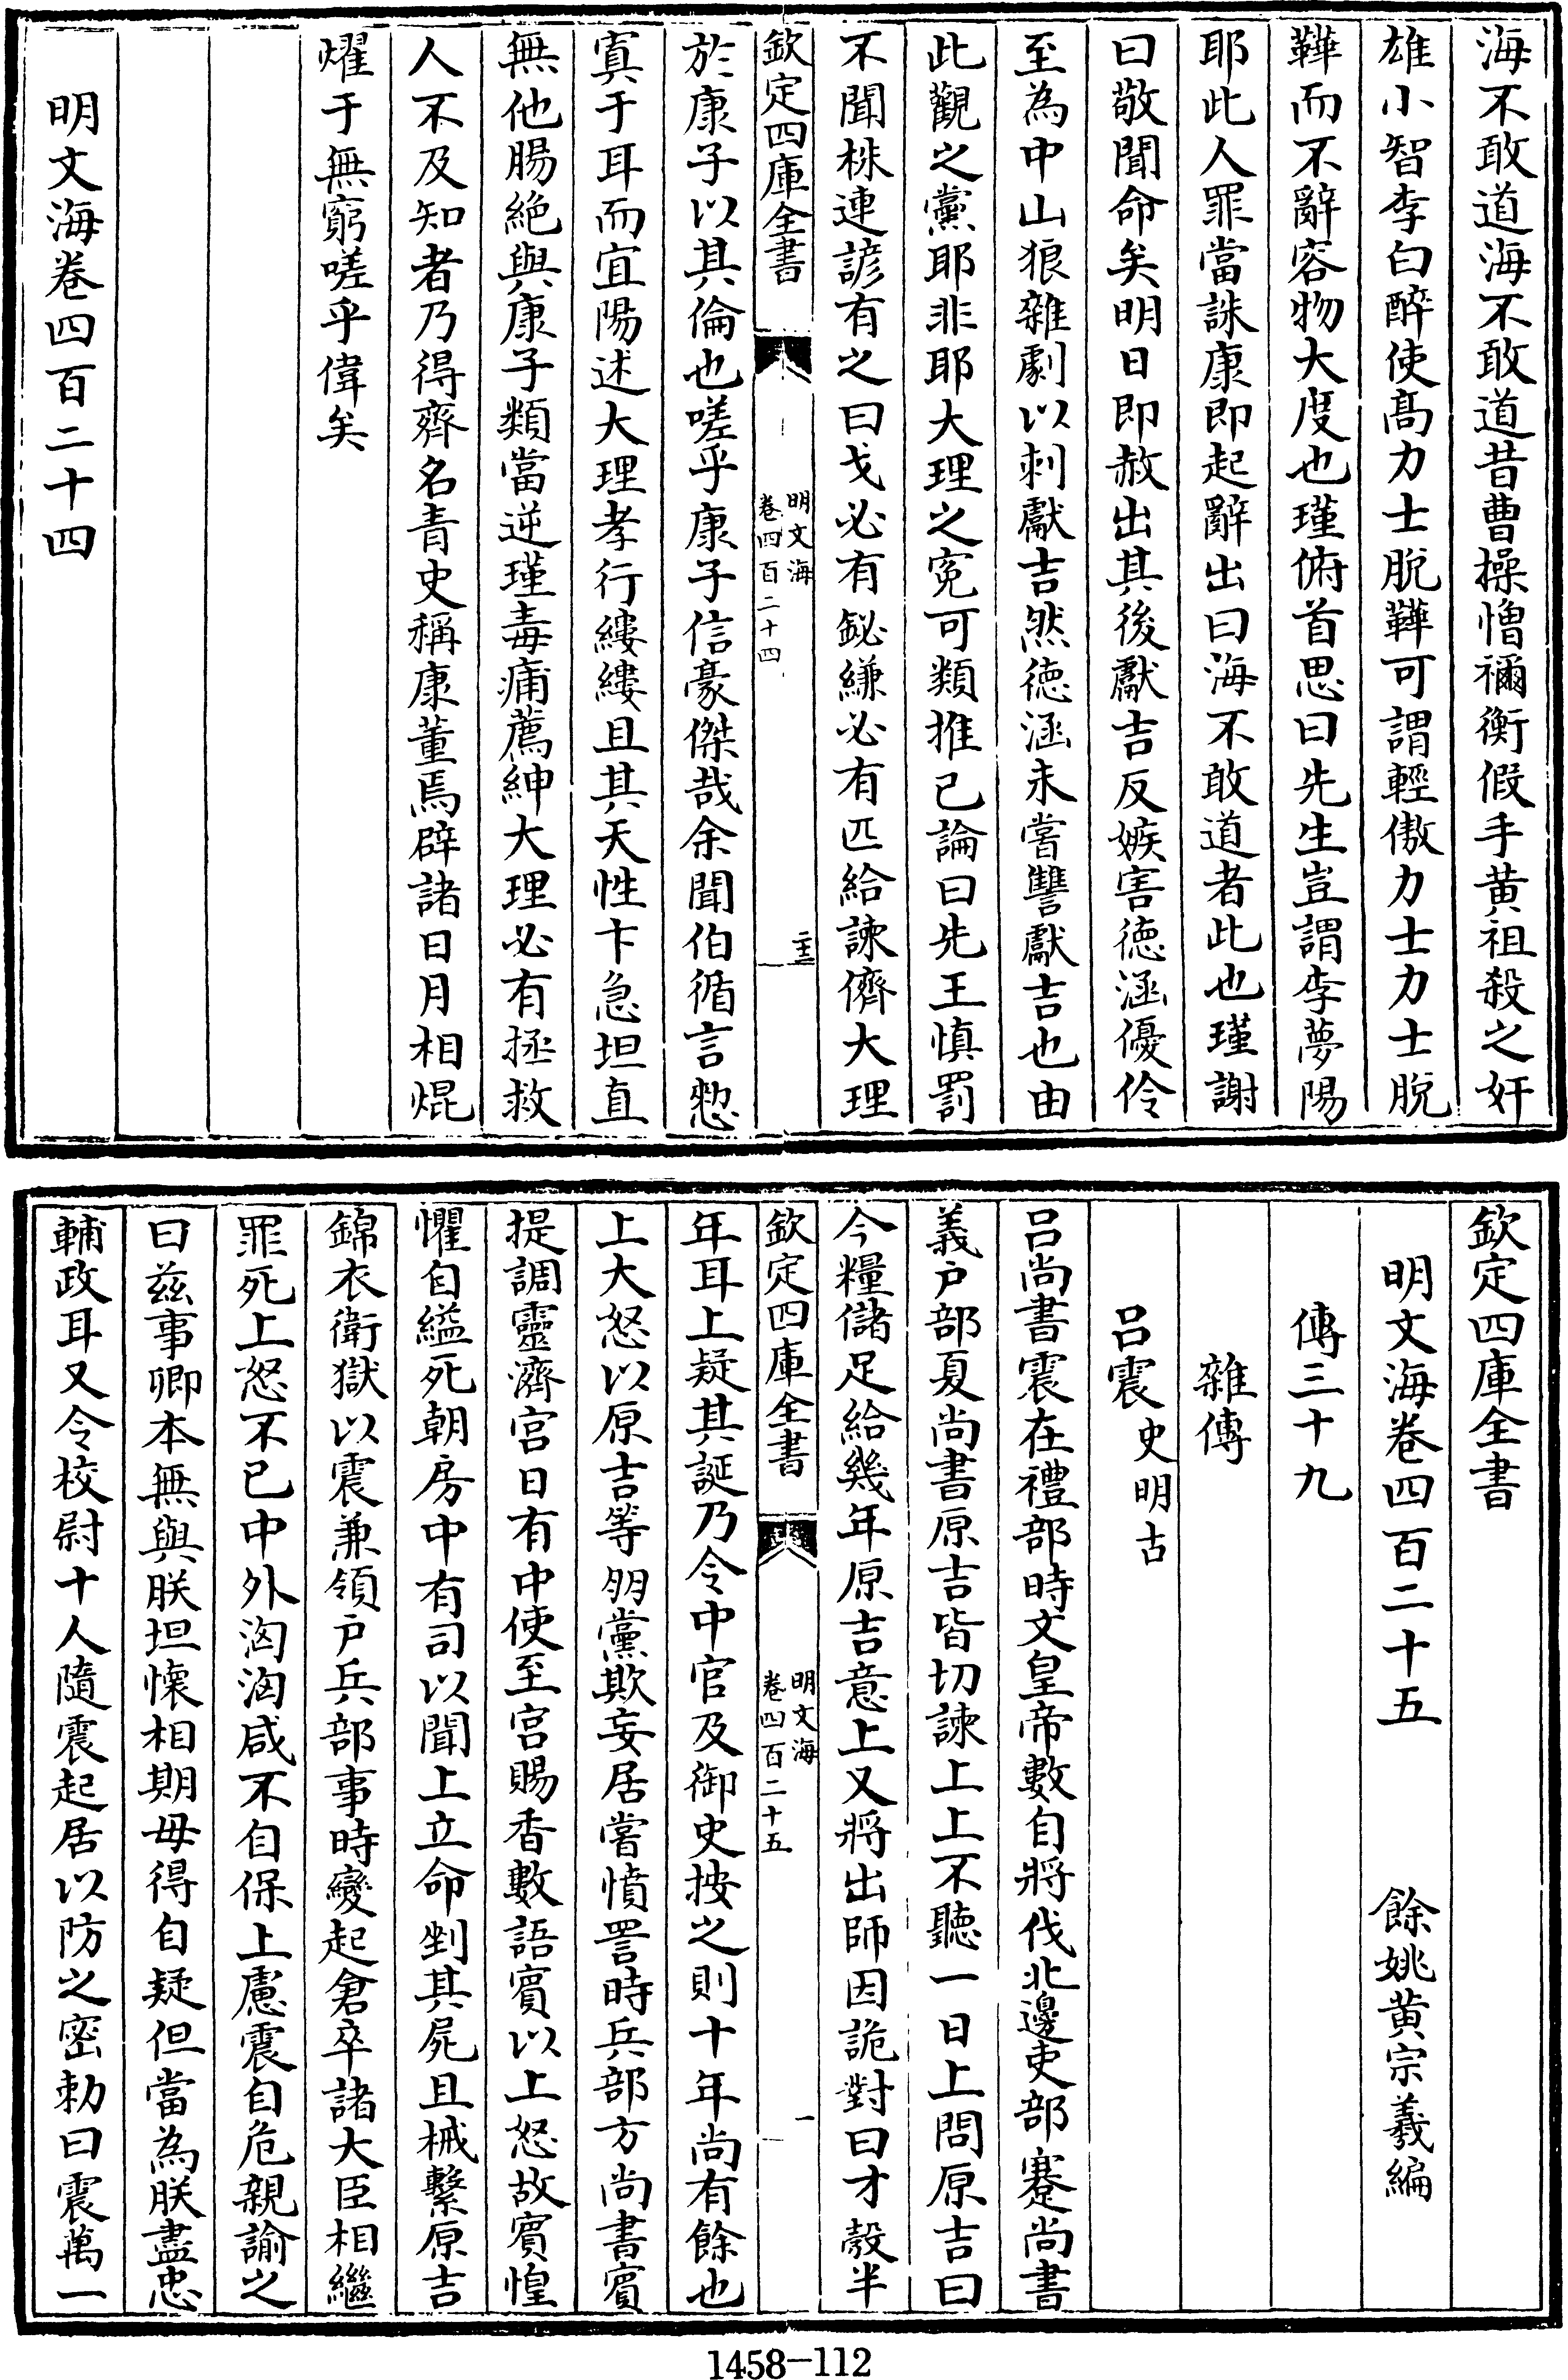 海不敢道海不敢道昔曹操憎禰衡假手黄祖殺之奸
雄小智李白醉使髙力士脫鞾可謂輕傲力士力士脫
鞾而不辭容物大度也瑾俯首思曰先生豈謂李夢陽
耶此人罪當誅康即起辭出曰海不敢道者此也瑾謝
曰敬聞命矣明日即赦出其後獻吉反嫉害徳涵優伶
至為中山狼雜劇以刺獻吉然徳涵未嘗讐獻吉也由
此觀之黨耶非耶大理之寃可類推已論曰先王慎罰
不聞株連諺有之曰戈必有鉍縑必有匹給諫儕大理
欽定四庫全書
明文海
卷四百二十四
於康子以其倫也嗟乎康子信豪傑哉余聞伯循言愸
寘于耳而宜陽述大理孝行縷縷且其天性卞急坦直
無他腸絶與康子類當逆瑾毒痡薦紳大理必有拯救
人不及知者乃得齊名青史稱康董焉辟諸日月相焜
燿于無窮嗟乎偉矣
明文海卷四百二十四
欽定四庫全書
明文海卷四百二十五
餘姚黄宗羲編
傳三十九
雜傳
吕震 史明古
吕尚書震在禮部時文皇帝數自將伐北邊吏部蹇尚書
義户部夏尚書原吉皆切諫上上不聽一日上問原吉曰
今糧儲足給幾年原吉意上又將出師因詭對曰才彀半
欽定四庫全書
明文海
卷四百二十五
一
年耳上疑其誕乃令中官及御史按之則十年尚有餘也
上大怒以原吉等朋黨欺妄居嘗憤詈時兵部方尚書賓
提調靈濟宫日有中使至宫賜香數語賓以上怒故賓惶
懼自縊死朝房中有司以聞上立命剉其屍且械繫原吉
錦衣衛獄以震兼領户兵部事時變起倉卒諸大臣相繼
罪死上怒不已中外洶洶咸不自保上慮震自危親諭之
曰兹事卿本無與朕坦懐相期毋得自疑但當為朕盡忠
輔政耳又令校尉十人隨震起居以防之密勅曰震萬一
1458-112